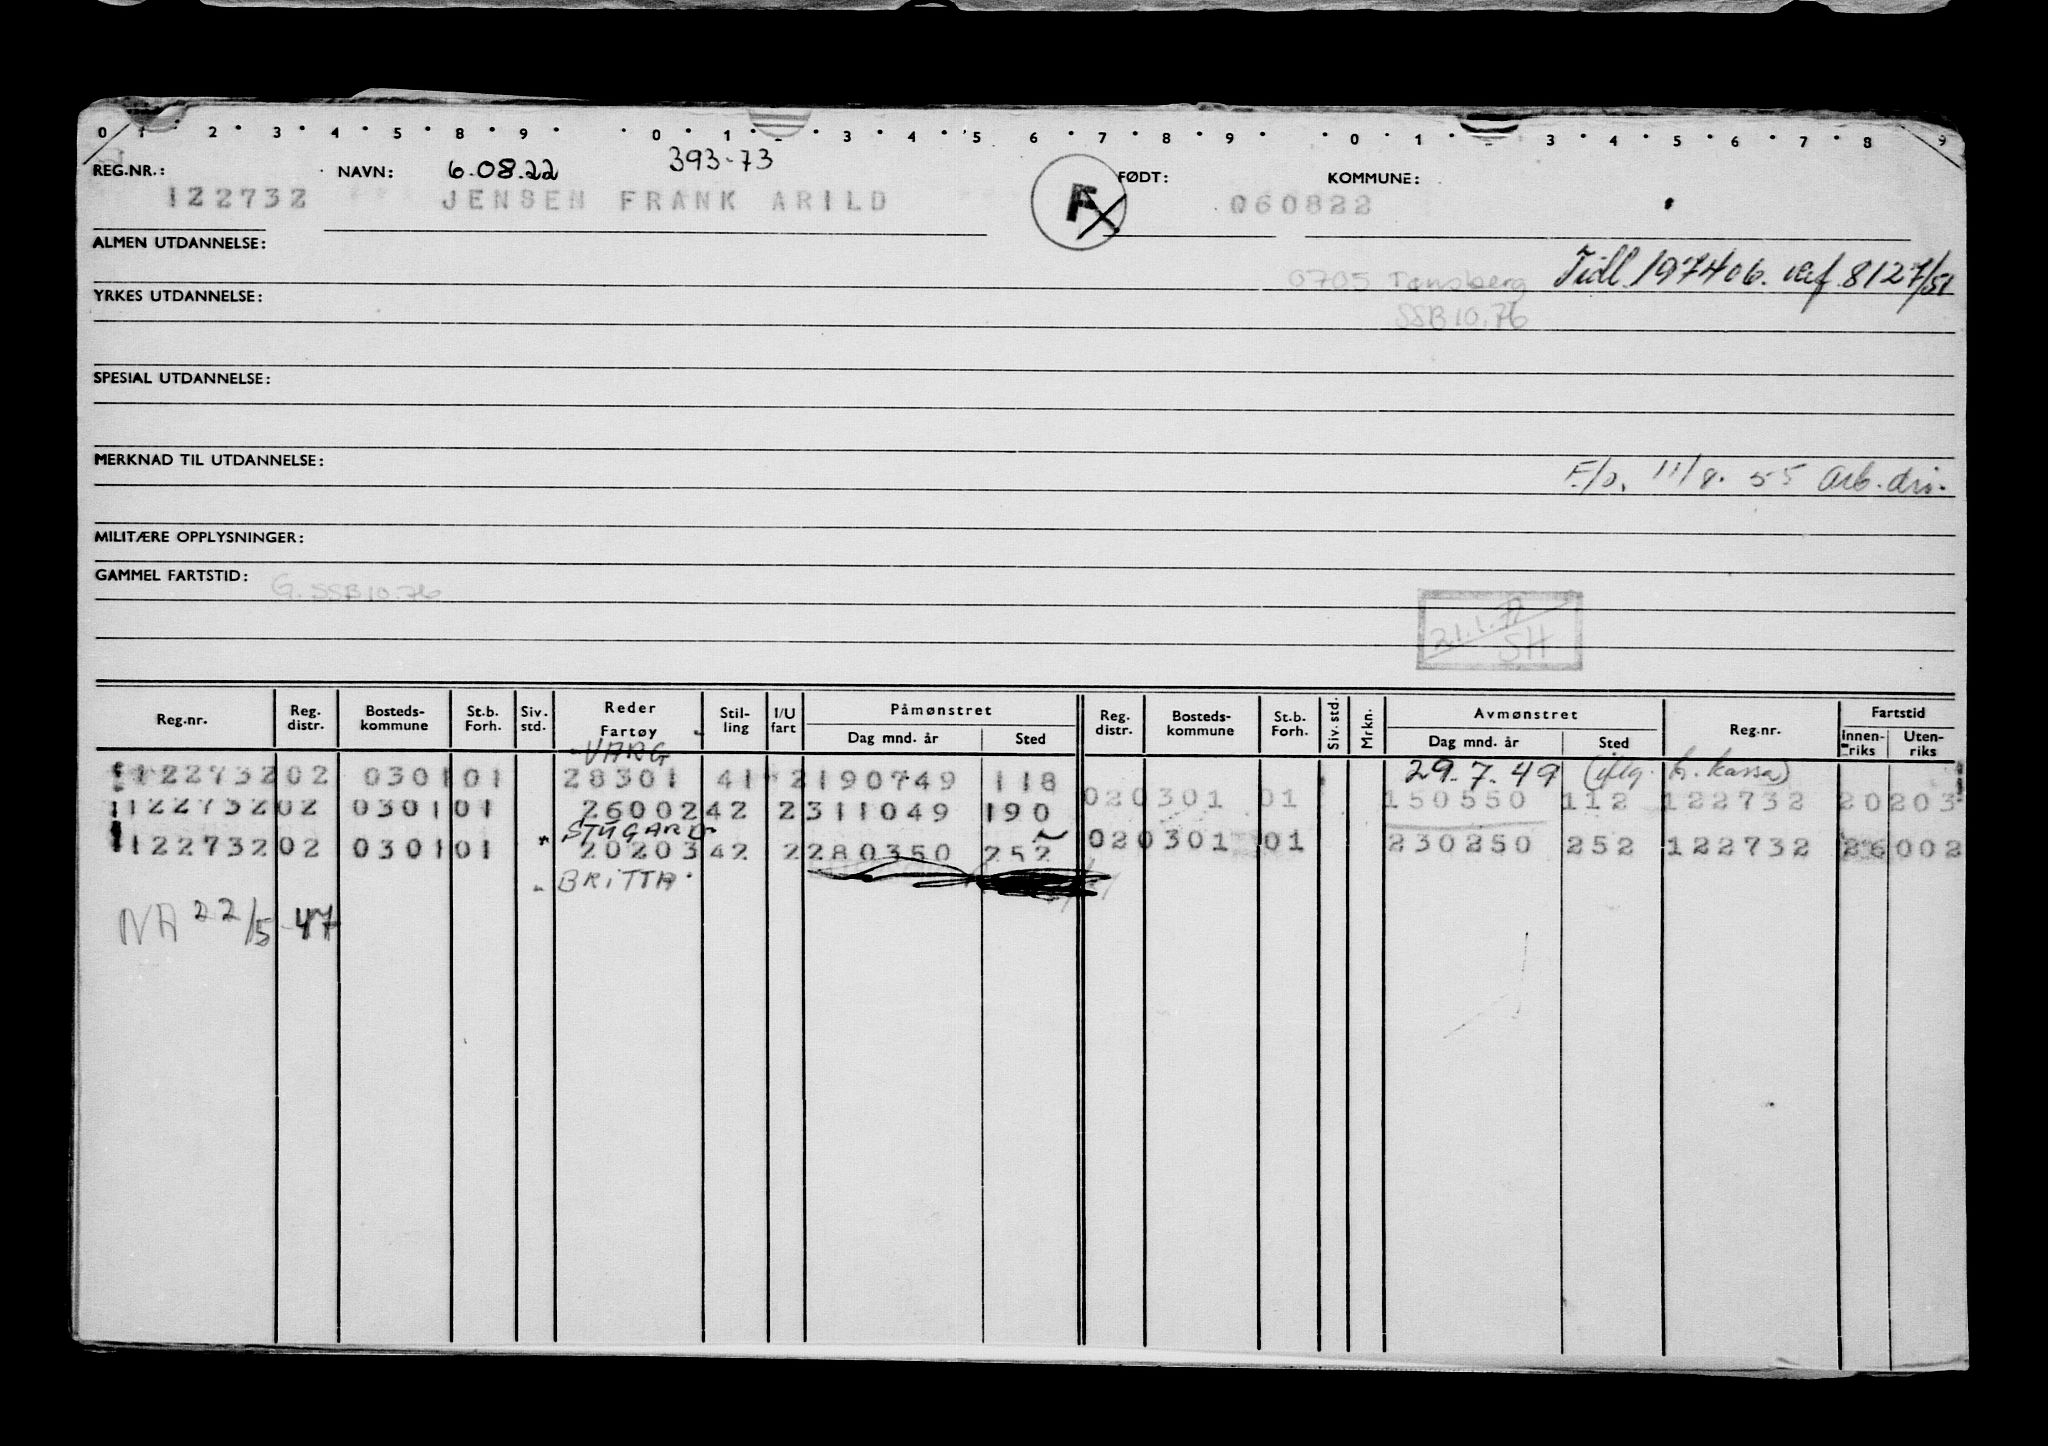 0 1 2 3 4 5 8 9 0 1 3 4 5 6 7 8 9 0 1 3 4 5 6 7 8 9
REG.NR.: NAVN: 6.08.22 393-73 FØDT: KOMMUNE:
122732 JENSEN FRANK ARILD F 060822
ALMEN UTDANNELSE:
0705 Tønsberg Tidl. 197406. 8127/51
YRKES UTDANNELSE:
SSB 10.76
SPESIAL UTDANNELSE:
MERKNAD TIL UTDANNELSE:
F/o. 11/8. 55 Arb. dir.
MILITÆRE OPPLYSNINGER:
GAMMEL FARTSTID: G. SSB 10.76
21.1.77
SH
Reg.nr. Reg. distr. Bosteds-kommune St.b. Forh. Siv. std. Reder Fartøy Stil-ling I/U fart Påmønstret Dag mnd. år Sted Reg. distr. Bosteds-kommune St.b. Forh. Siv. std. Mrkn. Avmønstret Dag mnd. år Sted Reg.nr. Fartstid Innen-riks Uten-riks
VARG
122732 02 0301 01 28301 41 2 190749 118 29.7.49
122732 02 0301 01 26002 42 2 311049 190 02 0301 01 150550 112 122732 20203
STUGARD
122732 02 0301 01 20203 42 2 280350 252 02 0301 01 230250 252 122732 26002
BRITTA
NA 22/5 47